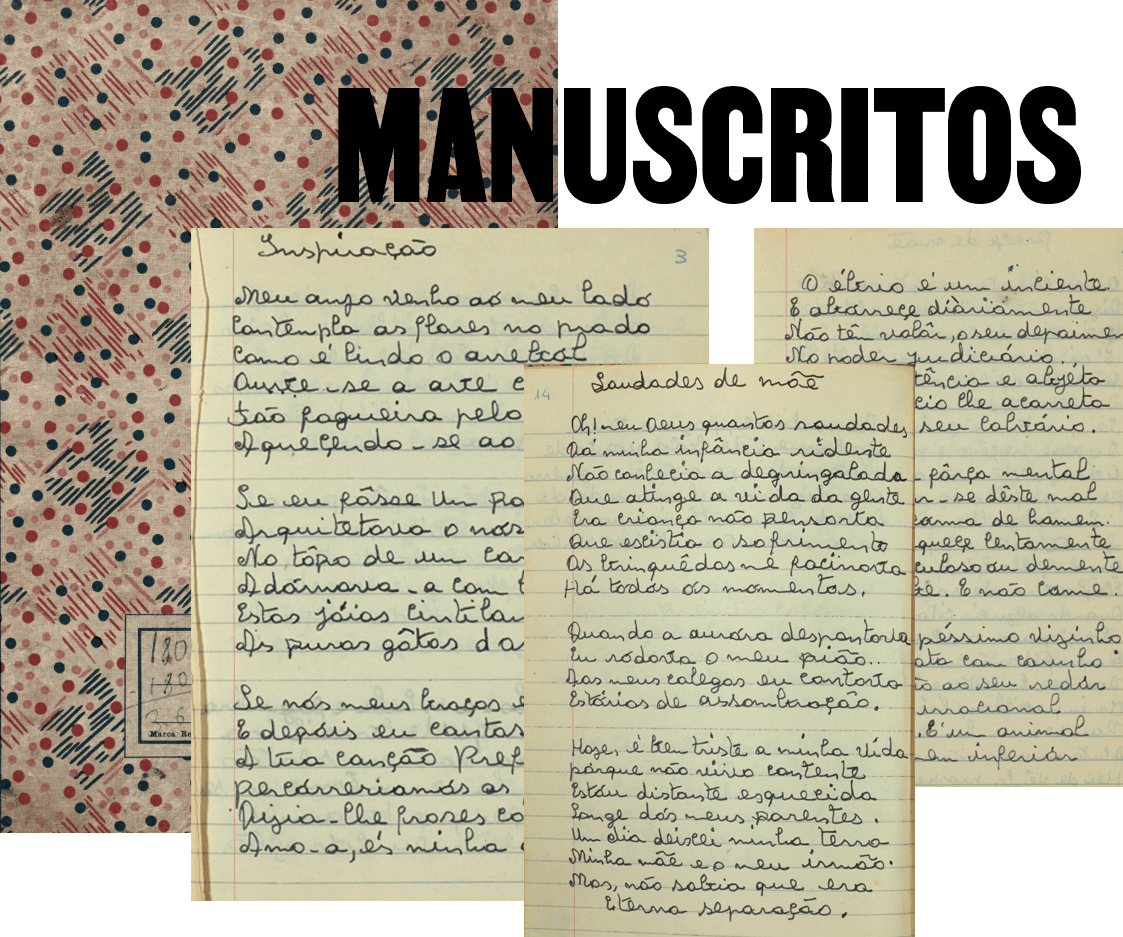 MANUSCRITOS
180
180
Marca Re
Inspiração
3
Meu anjo venho ao meu lado
Contempla as flores no prado
Como é lindo o arrebol
Ouvse-se a arte
Tão fagueira pelo
Aqueçendo-se ao
Se eu fôsse um
Arquitetava o nos
No tôpo de um
Adórnava-a com
Estas jóias cintilan
As puras gôtas da
Se nós meus braços
E depóis eu cantas
A tua canção Pref
percórreriamos as
Dizia-lhe frases co
Amo-a, és minha
14
Saudades de mãe
Oh! meu Deus quantas saudades
Da minha infância ridente
Não conhecia a degringolada
Que atinge a vida da gente
Era criança não pensava
Que existia o sofrimento
Os brinquêdos me facinava
Há todos os momentos.
Quando a auróra despontava
Eu rodava o meu pião..
Aos meus colegas eu contava
Estórias de assombração.
Hoje, é bem triste a minha vida
porque não vivo contente
Estou distante esquecida
Longe dos meus parentes.
Um dia deixei minha terra
Minha mãe e o meu irmão.
Mas, não sabia que era
Eterna separação.
O ébrio é um inciente.
E aborreçe diáriamente
Não têm valôr, o seu depoimen
No poder judiciário.
tência e abjéto
cio lhe acarreta
seu calvário.
fôrça mental
-se dêste mal
forma de homem.
queçe lentamente
culoso ou demente
E não come.
péssimo vizinho
ata com carinho
ao seu redór
irracional
. É um animal
inferiór